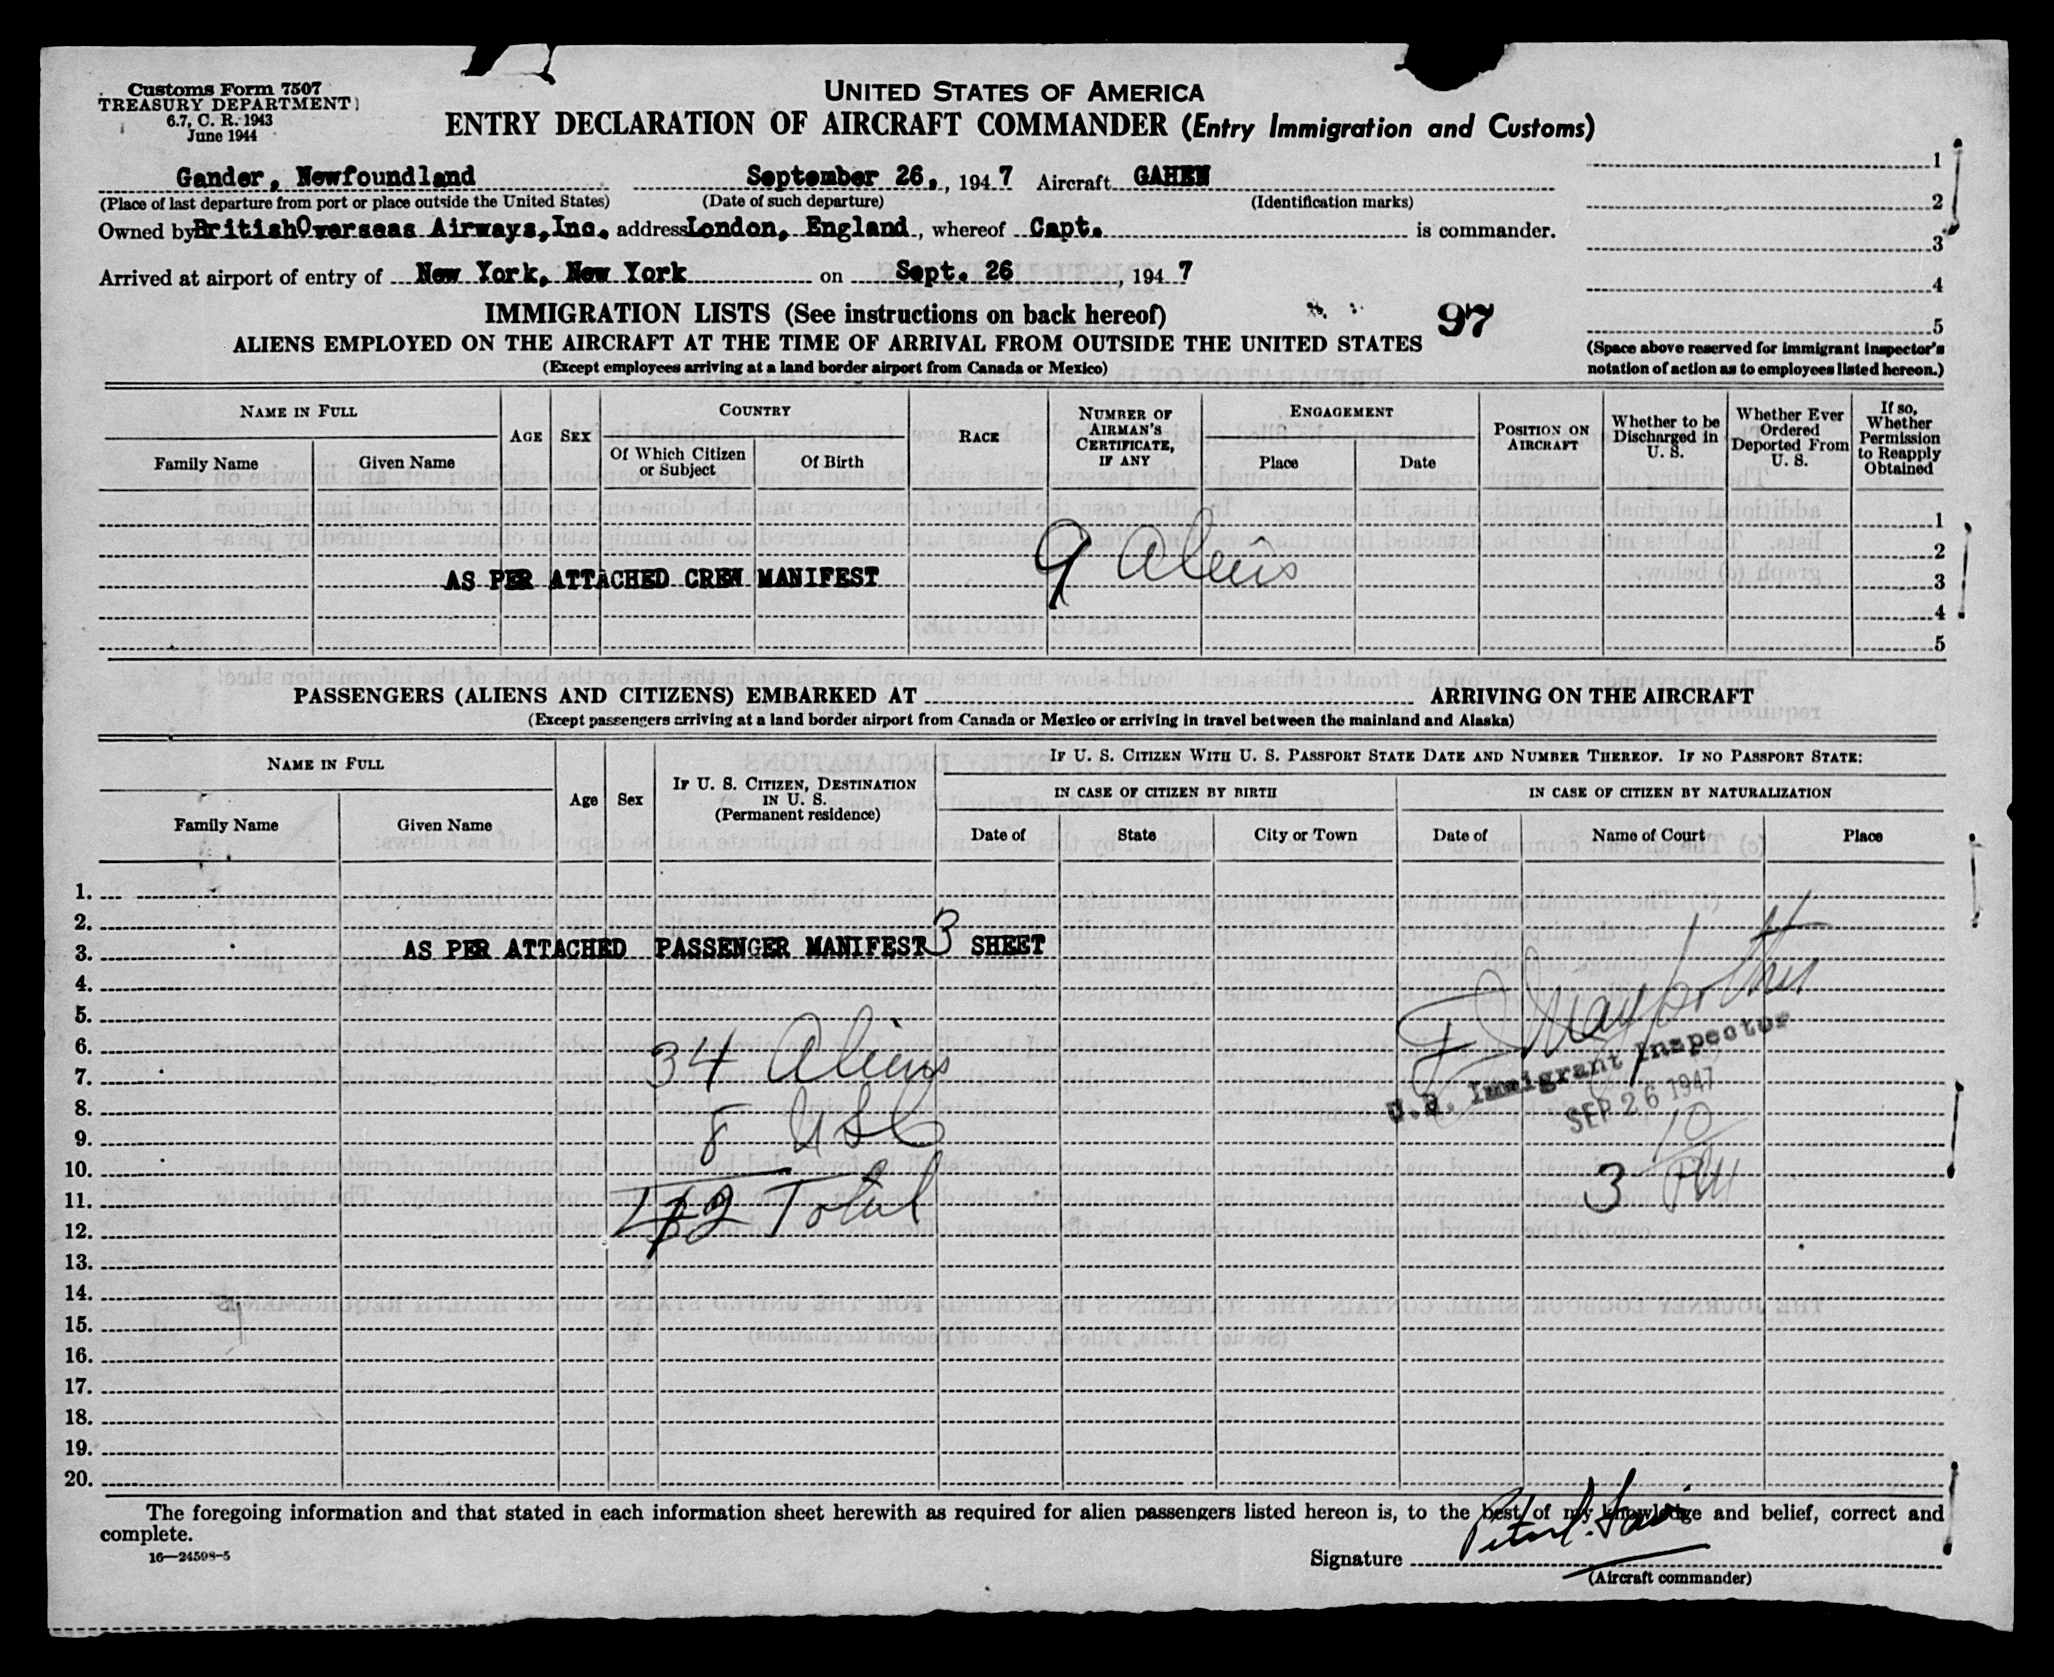 Customs Form 7507
TREASURY DEPARTMENT
6.7, C. R. 1943
June 1944
UNITED STATES OF AMERICA
ENTRY DECLARATION OF AIRCRAFT COMMANDER (Entry Immigration and Customs)
Gander, Newfoundland September 26, , 1947 Aircraft GAHEN
(Place of last departure from port or place outside the United States) (Date of such departure) (Identification marks)
Owned by British Overseas Airways, Inc. address London, England , whereof Capt. is commander.
Arrived at airport of entry of New York, New York on Sept. 26 , 1947
1
2
3
4
5
(Space above reserved for immigrant inspector's
notation of action as to employees listed hereon.)
IMMIGRATION LISTS (See instructions on back hereof)
97
ALIENS EMPLOYED ON THE AIRCRAFT AT THE TIME OF ARRIVAL FROM OUTSIDE THE UNITED STATES
(Except employees arriving at a land border airport from Canada or Mexico)
NAME IN FULL
Family Name Given Name
AGE
SEX
COUNTRY
Of Which Citizen or Subject
Of Birth
RACE
NUMBER OF AIRMAN'S CERTIFICATE, IF ANY
ENGAGEMENT
Place Date
POSITION ON AIRCRAFT
Whether to be Discharged in U. S.
Whether Ever Ordered Deported From U. S.
If so, Whether Permission to Reapply Obtained
1
2
AS PER ATTACHED CREW MANIFEST 9 Aliens 3
4
5
PASSENGERS (ALIENS AND CITIZENS) EMBARKED AT ARRIVING ON THE AIRCRAFT
(Except passengers arriving at a land border airport from Canada or Mexico or arriving in travel between the mainland and Alaska)
NAME IN FULL
Family Name Given Name
Age
Sex
IF U. S. CITIZEN, DESTINATION IN U. S.
(Permanent residence)
IF U. S. CITIZEN WITH U. S. PASSPORT STATE DATE AND NUMBER THEREOF. IF NO PASSPORT STATE:
IN CASE OF CITIZEN BY BIRTH
Date of State City or Town
IN CASE OF CITIZEN BY NATURALIZATION
Date of Name of Court Place
1.
2.
3. AS PER ATTACHED PASSENGER MANIFEST 3 SHEET
4.
5.
6. 34 Aliens
U.S. Immigrant Inspector
7.
SEP 26 1947
8. 8 USC
9. 10
10. 3
11. 42 Total
12.
13.
14.
15.
16.
17.
18.
19.
20.
The foregoing information and that stated in each information sheet herewith as required for alien passengers listed hereon is, to the best of my knowledge and belief, correct and
complete.
16—24598-5
Signature
(Aircraft commander)